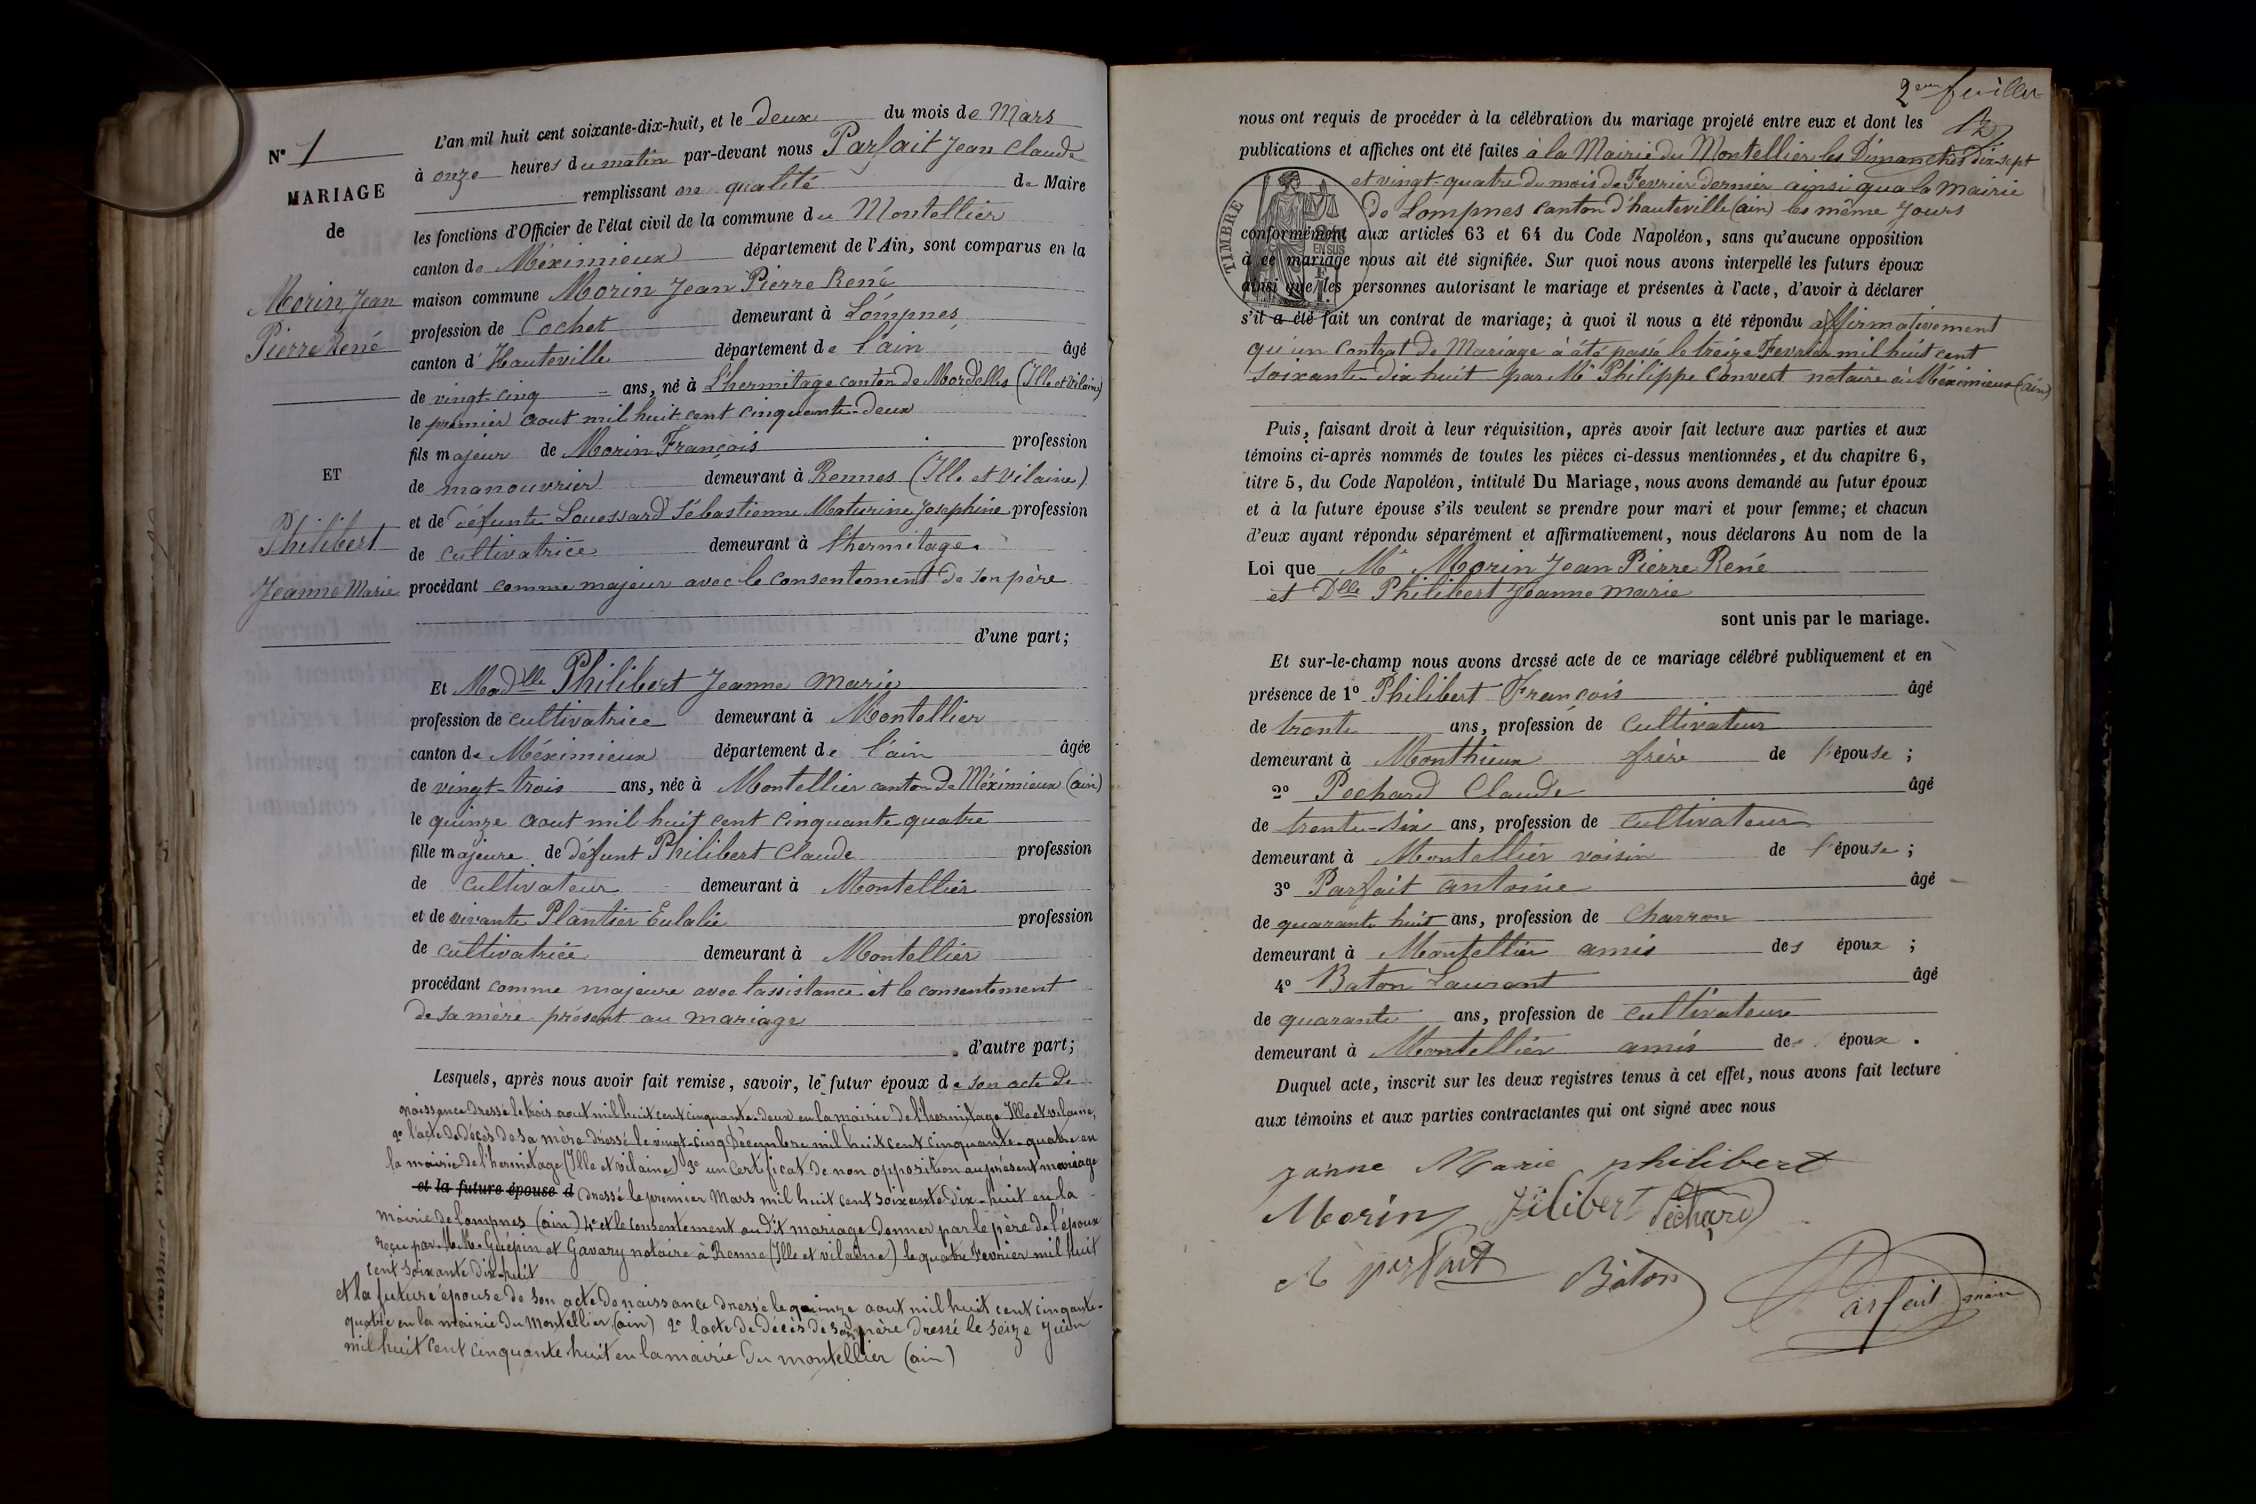 N° 1
MARIAGE
de
Morin Jean
Pierre René
ET
Philibert
Jeanne Marie
L'an mil huit cent soixante-dix-huit, et le deux du mois de Mars
à onze heures du matin par-devant nous Parfait Jean Claude
remplissant en qualité de Maire
les fonctions d'Officier de l'état civil de la commune du Montellier
canton de Méximieux département de l'Ain, sont comparus en la
maison commune Morin Jean Pierre René
profession de Cochet demeurant à Lompnes
canton d'Hauteville département de l'ain âgé
de vingt-cinq ans, né à L'hermitage canton de Mordelles (Ille et Vilaine)
le premier aout mil huit cent cinquante-deux
fils majeur de Morin François profession
de manouvrier demeurant à Rennes (Ille et Vilaine)
et de défunte Louessard Sébastienne Maturine Josephine profession
de cultivatrice demeurant à l'hermitage.
procédant comme majeur avec le consentement de son père
d'une part;
Et Madlle Philibert Jeanne Marie
profession de cultivatrice demeurant à Montellier
canton de Méximieux département de l'ain âgée
de vingt-trois ans, née à Montellier canton de Méximieux (ain)
le quinze aout mil huit cent cinquante quatre
fille majeure de défunt Philibert Claude profession
de cultivateur demeurant à Montellier
et de vivante Plantier Eulalie profession
de cultivatrice demeurant à Montellier
procédant comme majeure avec l'assistance et le consentement
de sa mère présent au mariage
d'autre part;
Lesquels, après nous avoir fait remise, savoir, le futur époux de son acte de
naissance dressé le trois aout mil huit cent cinquante-deux en la mairie de l'hermitage Ille et vilaine,
2° l'acte de décès de sa mère dressé le vingt-cinq Décembre mil huit cent cinquante-quatre en
la mairie de l'hermitage (Ille et vilaine) 3° un certificat de non opposition au présent mariage
et la future épouse d dressé le premier Mars mil huit cent soixante dix-huit en la
mairie de Lompnes (ain) 4° et le consentement au dit mariage donner par le père de l'époux
reçu par M. Me Guépin et Gavary notaire à Renne (Ille et vilaine) le quatre Fevrier mil huit
cent soixante dix-huit
et la future épouse de son acte de naissance dressé le quinze aout mil huit cent cinqante-
quatre en la mairie du Montellier (ain) 2° l'acte de décès de son père dressé le seize Juin
mil huit cent cinquante huit en la mairie du montellier (ain)
2eme feuillet
nous ont requis de procéder à la célébration du mariage projeté entre eux et dont les
publications et affiches ont été faites à la Mairie du Montellier les Dimanches dix-sept
et vingt-quatre du mois de Fevrier dernier ainsi qua la Mairie
de Lompnes canton d'hauteville (ain) les même Jours
TIMBRE
EN SUS
conformément aux articles 63 et 64 du Code Napoléon, sans qu'aucune opposition
à ce mariage nous ait été signifiée. Sur quoi nous avons interpellé les futurs époux
ainsi que les personnes autorisant le mariage et présentes à l'acte, d'avoir à déclarer
s'il a été fait un contrat de mariage; à quoi il nous a été répondu affirmativement
qu'un Contrat de Mariage à été passé le treize Fevrier mil huit cent
soixante-dix huit par Me Philippe Convert notaire à Méximieux (ain)
Puis, faisant droit à leur réquisition, après avoir fait lecture aux parties et aux
témoins ci-après nommés de toutes les pièces ci-dessus mentionnées, et du chapitre 6,
titre 5, du Code Napoléon, intitulé Du Mariage, nous avons demandé au futur époux
et à la future épouse s'ils veulent se prendre pour mari et pour femme; et chacun
d'eux ayant répondu séparément et affirmativement, nous déclarons Au nom de la
Loi que Mr Morin Jean Pierre René
et Dlle Philibert Jeanne Marie
sont unis par le mariage.
Et sur-le-champ nous avons dressé acte de ce mariage célébré publiquement et en
présence de 1° Philibert François âgé
de trente ans, profession de cultivateur
demeurant à Monthieux frère de l'épouse;
2° Pechard Claude âgé
de trente-six ans, profession de cultivateur
demeurant à Montellier voisin de l'épouse;
3° Parfait antoine âgé
de quarante huit ans, profession de charron
demeurant à Montellier amis des époux;
4° Baton Laurent âgé
de quarante ans, profession de cultivateur
demeurant à Montellier amis de époux.
Duquel acte, inscrit sur les deux registres tenus à cet effet, nous avons fait lecture
aux témoins et aux parties contractantes qui ont signé avec nous
janne Marie philibert
Morin filibert Péchard
A parfait Bâton Parfait maire